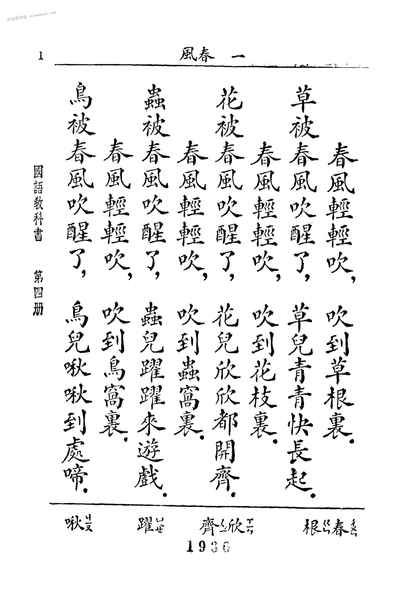 一　春風
1
春風輕輕吹，吹到草根裏．
草被春風吹醒了，草兒青青快長起．
春風輕輕吹，吹到花枝裏．
花被春風吹醒了，花兒欣欣都開齊．
春風輕輕吹，吹到蟲窩裏．
蟲被春風吹醒了，蟲兒躍躍來遊戲．
春風輕輕吹，吹到鳥窩裏．
鳥被春風吹醒了，鳥兒啾啾到處啼．
國語教科書　第四册
春 根 欣 齊 躍 啾
1936